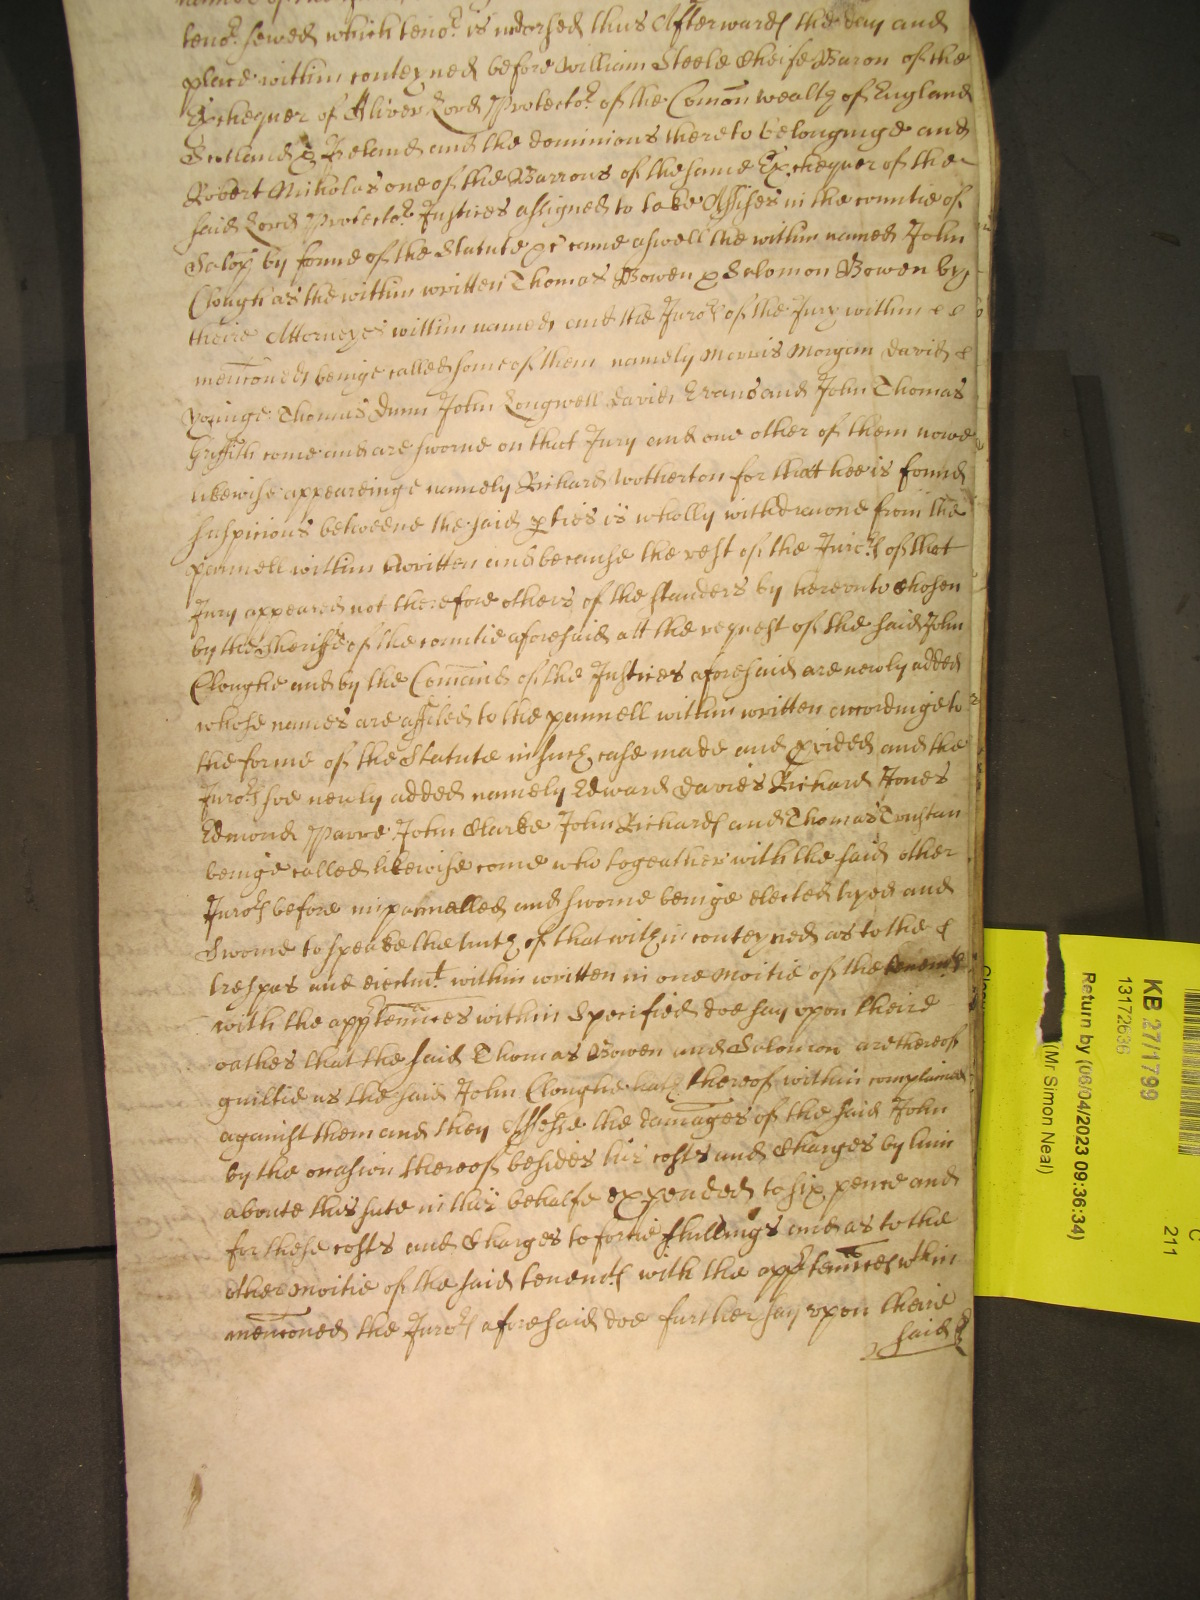 teno.r sewed which teno.r is indorsed thus Afterwards the day and
place within conteyned before William Steele Cheife Baron of the
Exchequer of Oliver Lord Protecto.r of the Com̅on wealth of England
Scotland & Ireland and the dominions thereto belonginge and
Robert Nicholas one of the Barrons of the same Exchequer of the
said Lord Protecto.r Justices assigned to take Assises in the countie of
Salop by forme of the Statute &c came aswell the within named John
Clough as the within written Thomas Bowen & Solomon Bowen by
theire Attorneyes within named and the Juro.rs of the Jury within
menc̅oned beinge called some of them namely Morris Morgan David
Younge Thomas Dunn John Longwell David Evans and John Thomas
Griffith come and are sworne on that Jury and one other of them nowe
likewise appearinge namely Richard Wotherton for thatt hee is found
suspicious betweene the said p̱ties is wholly withdrawne from the
pannell within written and because the rest of the Juro.rs of that
Jury appeared not therefore others of the standers by hereunto chosen
by the Sheriffe of the countie aforesaid att the request of the said John
Cloughe and by the Com̅and of the Justices aforesaid are newly added
whose names are affiled to the pannell within written accordinge to
the forme of the Statute in such case made and p̱vided and the
Juro.rs soe newly added namely Edward Davies Richard Jones
Edmond Parre John Clarke John Richards and Thomas Trustan
beinge called likewise come who togeather with the said other
Juro.rs before impannelled and sworne beinge elected tryed and
Sworne to speake the truth of that within conteyned as to the
trespas and eiectm.t within written in one moitie of the tenem.ts
with the app̱tenn̅ces within Specified doe say upon theire
oathes that the said Thomas Bowen and Solomon are thereof
guiltie as the said John Cloughe hath thereof within complained
against them and they Assesse the damages of the said John
by the occasion thereof besides his costs and Charges by him
aboute this suite in this behalfe expended to six pence and
for these costs and Charges to fortie shillings and as to the
other moitie of the said tenem.ts with the app̱tenn̅ces w.thin
menc̅oned the Juro.rs aforesaid doe further say upon theire
said
KB 27/1799
13172636
Return by (06/04/2023 09:36:34)
(Mr Simon Neal)
C
211